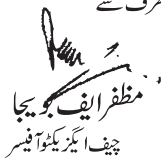 رف سے
مظفر ایف جویجا
چیف ایگزیکٹو آفیسر